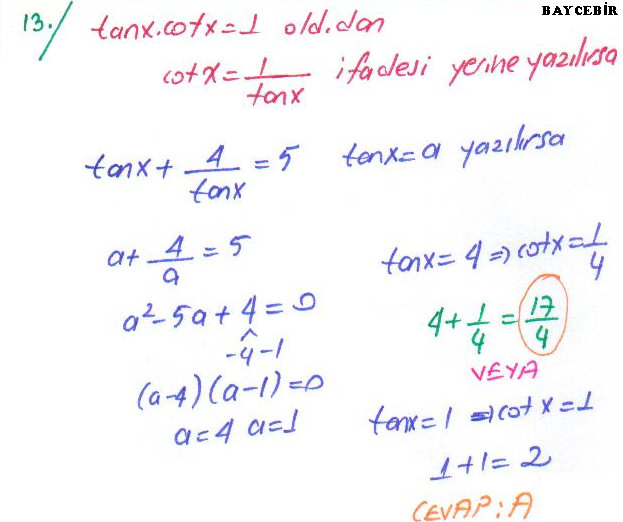 BAYCEBİR
13./ tanx.cotx=1 old.dan
cotx=1/tanx ifadesi yerine yazılırsa
tanx+4/tanx=5 tanx=a yazılırsa
a+4/a=5
a²-5a+4=0
-4-1
(a-4)(a-1)=0
a=4 a=1
tanx=4⇒cotx=1/4
4+1/4=17/4
VEYA
tanx=1⇒cotx=1
1+1=2
CEVAP:A